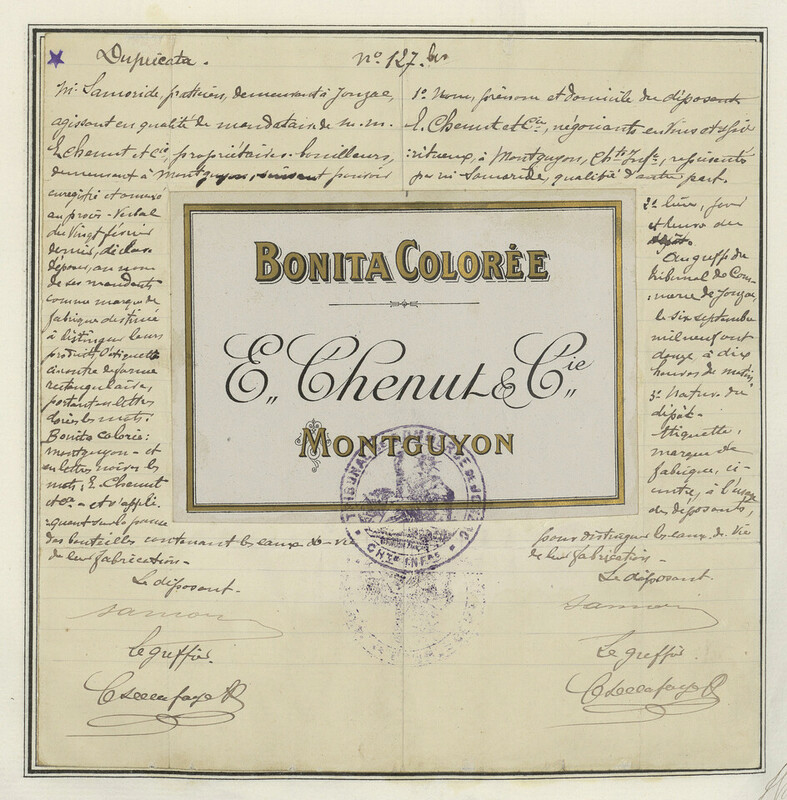 Duplicata.
No 127. bis
Mr Samoride, praticien, demeurant à Jonzac,
agissant en qualité de mandataire de m.m.
E. Chenut et Cie, propriétaires-bouilleurs,
demeurant à Montguyon, suivant pouvoir
enregistré et annexé
au procès-verbal
du Vingt février
dernier, déclare
déposer, au nom
de ses mandants
comme marque de
fabrique destinée
à distinguer leurs
produits l'étiquette
ci-contre de forme
rectangulaire,
portant en lettres
dorées les mots:
Bonita Colorée:
Montguyon - et
en lettres noires les
mots, E. Chenut
et Cie - et s'appli-
quant sur la panse
des bouteilles contenant les eaux-de-vie
de leur fabrication -
Le déposant.
Le greffier.
1o Nom, prénom et domicile du déposant
E. Chenut et Cie, négociants en Vins et spi-
ritueux, à Montguyon, Chte Infre, représentés
par mr Samoride, qualifié d'autre part.
2o lieu, jour
et heure du
dépôt.
Au greffe du
tribunal de Com-
merce de Jonzac,
le six septembre
mil neuf cent
douze à dix
heures du matin.
3o Nature du
dépôt -
Etiquette,
marque de
fabrique, ci-
contre, à l'usage
des déposants,
pour distinguer les eaux-de-Vie
de leur fabrication -
Le déposant.
Le greffier.
BONITA COLORÉE
E„ Chenut & Cie„
MONTGUYON
CHTE INFRE